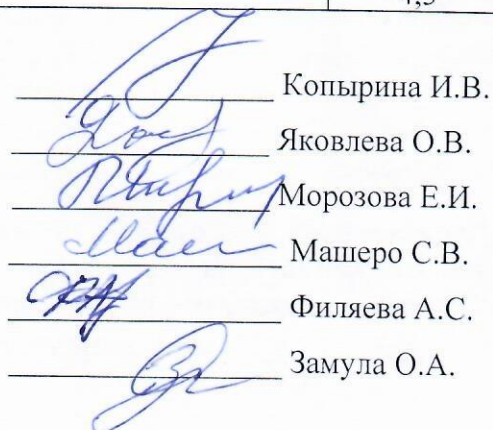 4,5
Копырина И.В.
Яковлева О.В.
Морозова Е.И.
Машеро С.В.
Филяева А.С.
Замула О.А.